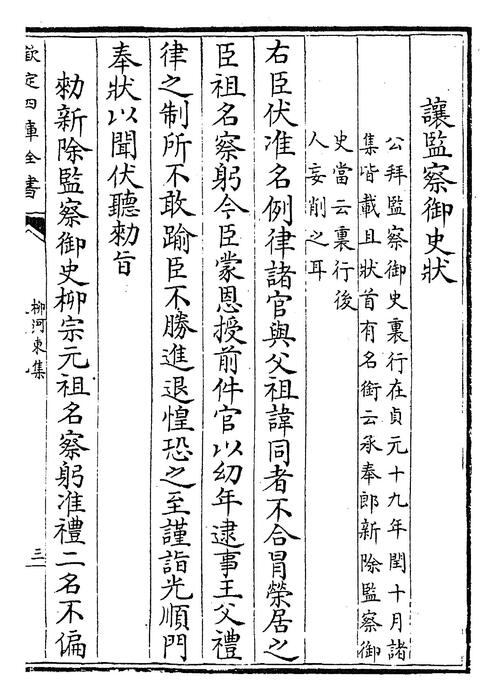 讓監察御史狀
公拜監察御史裏行在貞元十九年閏十月諸
集皆載且狀首有名銜云承奉郎新除監察御
史當云裏行後
人妄削之耳
右臣伏准名例律諸官與父祖諱同者不合冒榮居之
臣祖名察躬今臣蒙恩授前件官以幼年逮事王父禮
律之制所不敢踰臣不勝進退惶恐之至謹詣光順門
奉狀以聞伏聽勑旨
勑新除監察御史柳宗元祖名察躬准禮二名不偏
欽定四庫全書
柳河東集
三